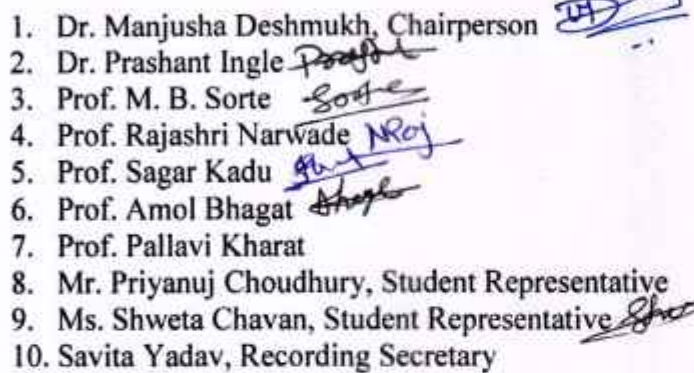 1. Dr. Manjusha Deshmukh, Chairperson
2. Dr. Prashant Ingle
3. Prof. M. B. Sorte Sorte
4. Prof. Rajashri Narwade NRaj
5. Prof. Sagar Kadu
6. Prof. Amol Bhagat
7. Prof. Pallavi Kharat
8. Mr. Priyanuj Choudhury, Student Representative
9. Ms. Shweta Chavan, Student Representative
10. Savita Yadav, Recording Secretary